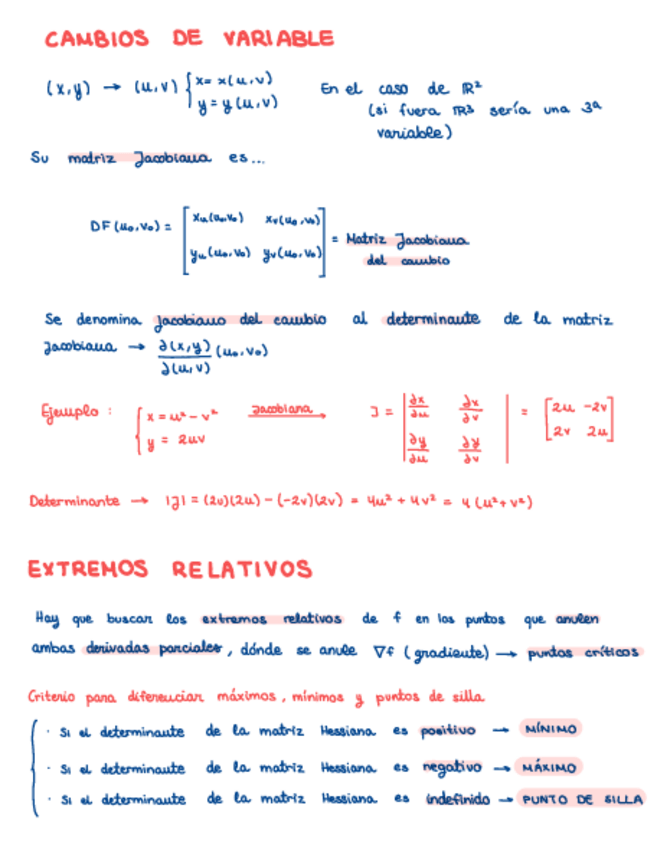 CAMBIOS DE VARIABLE
(x,y) → (u,v) { x = x(u,v)
y = y(u,v)
En el caso de ℝ²
(si fuera ℝ3 sería una 3ª
variable)
Su matriz Jacobiana es...
DF(u₀,v₀) = [ xu(u₀,v₀) xv(u₀,v₀)
yu(u₀,v₀) yv(u₀,v₀) ] = Matriz Jacobiana
del cambio
Se denomina jacobiano del cambio al determinante de la matriz
Jacobiana → ∂(x,y)/∂(u,v) (u₀,v₀)
Ejemplo : { x = u² - v²
y = 2uv
Jacobiana →
J = | ∂x/∂u ∂x/∂v
∂y/∂u ∂y/∂v | = [ 2u -2v
2v 2u ]
Determinante → |J| = (2u)(2u) - (-2v)(2v) = 4u² + 4v² = 4(u²+v²)
EXTREMOS RELATIVOS
Hay que buscar los extremos relativos de f en los puntos que anulen
ambas derivadas parciales, dónde se anule ∇f (gradiente) → puntos críticos
Criterio para diferenciar máximos, mínimos y puntos de silla
· Si el determinante de la matriz Hessiana es positivo → MÍNIMO
· Si el determinante de la matriz Hessiana es negativo → MÁXIMO
· Si el determinante de la matriz Hessiana es indefinido → PUNTO DE SILLA